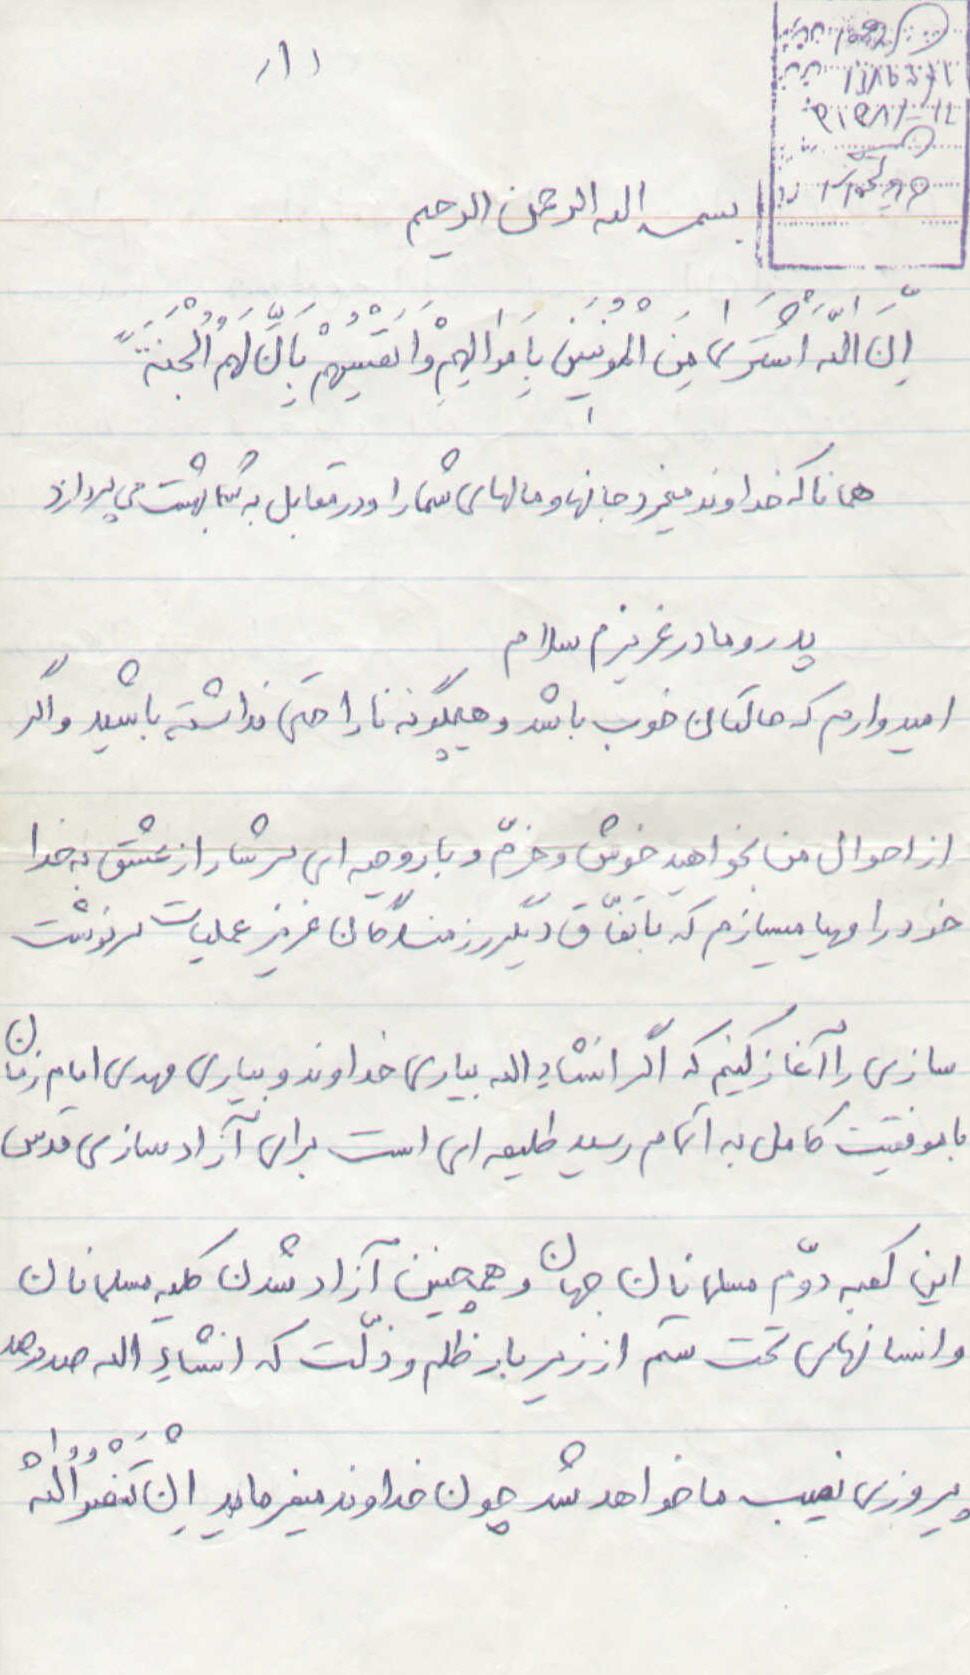 (۱)
بسمه الله الرحمن الرحیم
اِنَّ اللّهَ اشْتَرىٰ مِنَ الْمُؤْمِنینَ بِاَموٰالِهِمْ وَاَنفُسِهِمْ بِاَنَّ لَهُمُ الْجَنَّةَ
همانا که خداوند میخرد جانها و مالهای شما را و در مقابل به شما بهشت می پردازد
پدر و مادر عزیزم سلام
امیدوارم که حالتان خوب باشد و هیچگونه ناراحتی نداشته باشید و اگر
از احوال من بخواهید خوش و خرّم و با روحیه ای سرشار از عشق به خدا
خود را مهیا میسازم که باتفّاق دیگر رزمندگان عزیز عملیات سرنوشت
سازی را آغاز کنیم که اگر انشاءالله بیاری خداوند و بیاری مهدی امام زمان
با موفقیت کامل به اتمام رسید طلیعه ای است برای آزاد سازی قدس
این کعبه دوّم مسلمانان جهان و همچنین آزاد شدن کلیه مسلمانان
و انسانهای تحت ستم از زیر بار ظلم و ذلّت که انشاءِ الله صد در صد
پیروزی نصیب ما خواهد شد چون خداوند میفرماید اِنْ تَنْصُرُوا اللّهْ